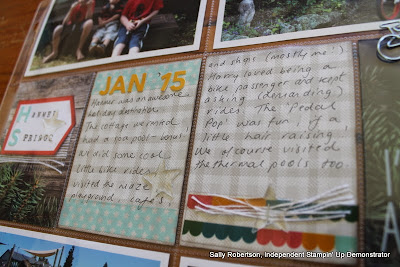 JAN '15
Hanmer was an awesome
holiday destination.
The cottage we rented
had a spa pool - bonus!
We did some cool
little bike rides
visited the maze
playground, cafe's
and shops (mostly me!)
Harry loved being a
bike passenger and kept
asking (demanding)
rides. The 'Pedal
Pop' was fun, if a
little hair raising.
We of course visited
the thermal pools too
H
S
Sally Robertson, Independent Stampin' Up Demonstrator